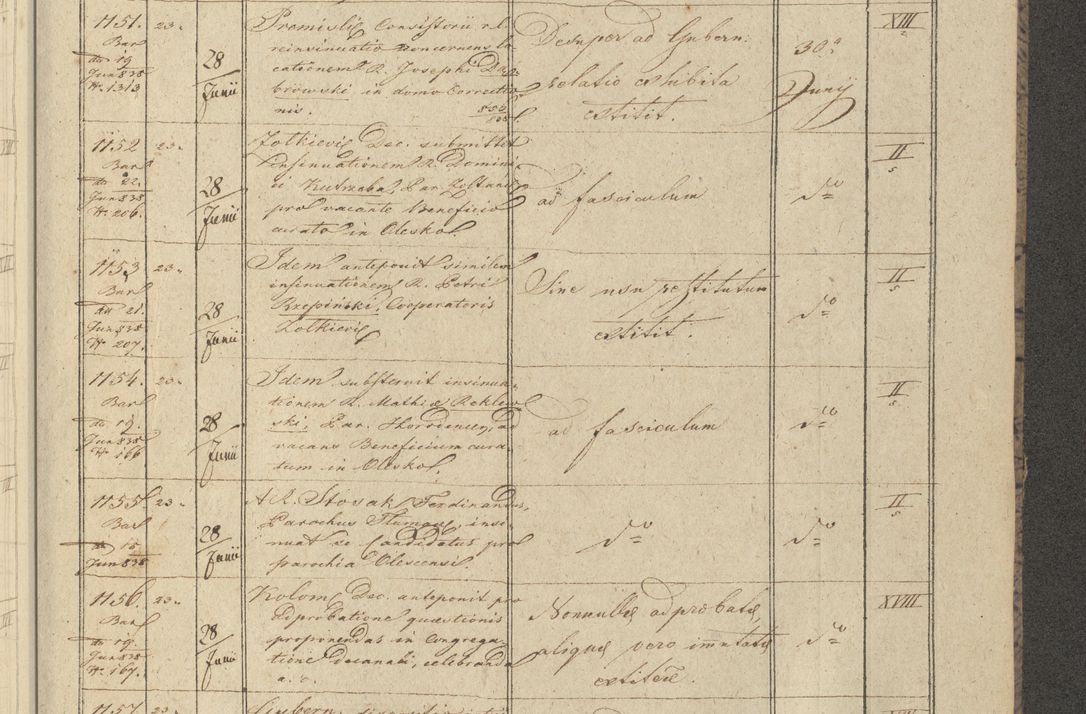 1151. 23.
Bar
du 19
Jun 838
N. 1313
28
Junii
Promislie Consistorii r. l.
reinsinuatio concernens lo-
cationem R. Josephi Dą-
browski in domo Correctio-
nis.
Desuper ad Gubern:
relatio exhibita
extitit.
30a
Junij
XIII
2
1152 23.
Bar
du 22.
Jun 838
N. 206.
28
Junii
Zolkievi Dec. submittit
insinuationem R. Domini-
ci Kutrzeba, Par.
pro vacante Beneficio
curato in Olesko.
ad fasciculum
do
II
5
1153 23.
Bar
du 21.
Jun 838
N. 207.
28
Junii
Idem anteponit similem
insinuationem R. Petri
Rzepiński, Cooperatoris
Zolkievi
Sine usu restitutum
extitit.
do
II
5
1154. 23.
Bar
du 19.
Jun 838
N. 166
28
Junii
Idem substernit insinua-
tionem R. Mathiæ Reklew-
ski, Par. ad
vacans Beneficium cura-
tum in Olesko.
ad fasciculum
do
II
5
1155 23.
Bar
du 15
Jun 838
28
Junii
A. R. Stosak Ferdinandus,
Parochus Tlumacz, insi-
nuat se Candidatus pro
parochia Olescensi.
do
do
II
5
1156. 23.
Bar
du 19.
Jun 838
N. 167.
28
Junii
Kolom. Dec. anteponit pro
adprobatione quæstionis
proponendas in Congrega-
tione decanali, celebranda
a. c.
Nonnullæ adprobatæ,
aliquæ vero immutatæ
extitêre.
do
XVIII
1157 23.
Gubern.